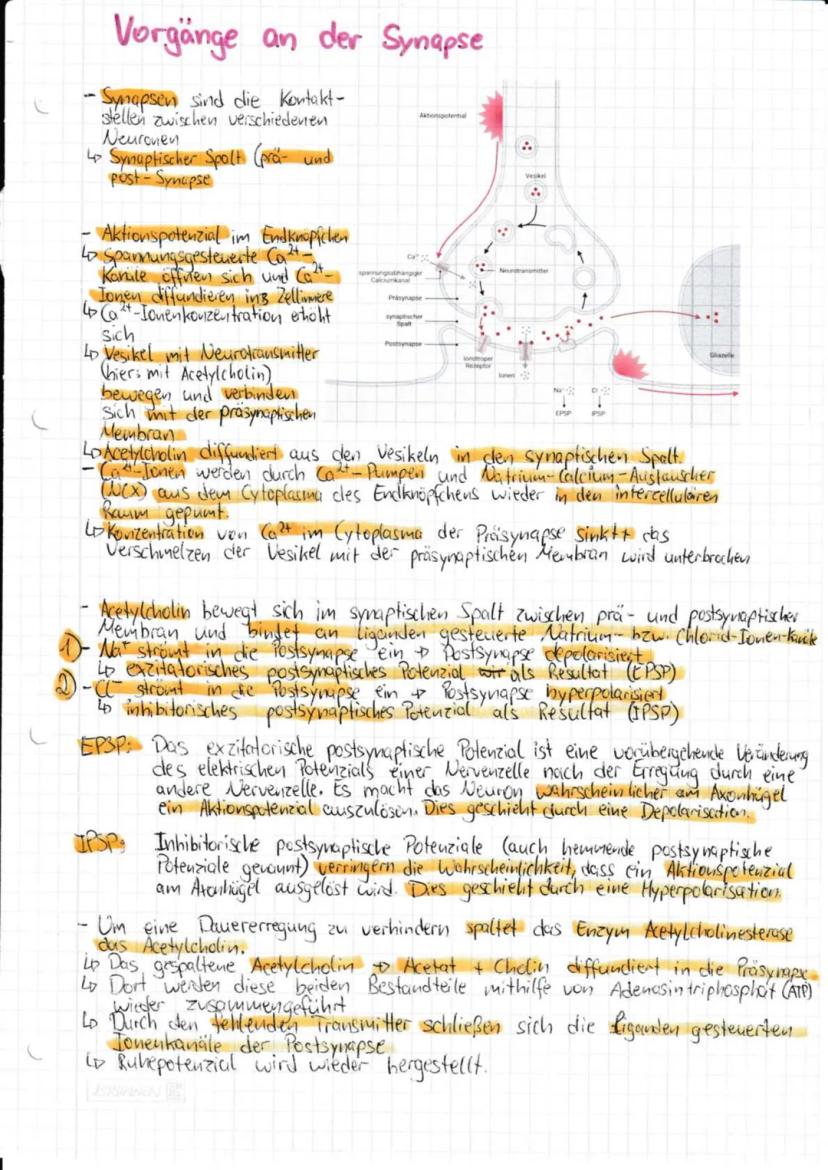 Vorgänge an der Synapse
- Synapsen sind die Kontakt-
stellen zwischen verschiedenen
Neuronen
↳ Synaptischer Spalt (prä- und
post-Synapse
- Aktionspotenzial im Endknöpfchen
↳ Spannungsgesteuerte Ca²⁺-
Kanäle öffnen sich und Ca²⁺-
Ionen diffundieren ins Zellinnere
↳ Ca²⁺-Ionenkonzentration erhöht
sich
↳ Vesikel mit Neurotransmitter
(hier: mit Acetylcholin)
bewegen und verbinden
sich mit der präsynaptischen
Membran
Aktionspotential
Vesikel
Ca²⁺
spannungsabhängiger
Calciumkanal
Neurotransmitter
Präsynapse
synaptischer
Spalt
Postsynapse
Ionotroper
Rezeptor
Ionen
Gliazelle
Na⁺
Cl⁻
EPSP
IPSP
↳ Acetylcholin diffundiert aus den Vesikeln in den synaptischen Spalt.
- Ca²⁺-Ionen werden durch Ca²⁺-Pumpen und Natrium-Calcium-Austauscher
(NCX) aus dem Cytoplasma des Endknöpfchens wieder in den intercellulären
Raum gepumt.
↳ Konzentration von Ca²⁺ im Cytoplasma der Präsynapse sinkt → das
Verschmelzen der Vesikel mit der präsynaptischen Membran wird unterbrochen
- Acetylcholin bewegt sich im synaptischen Spalt zwischen prä- und postsynaptischer
Membran und bindet an liganden gesteuerte Natrium- bzw. Chlorid-Ionen-Kanäle
1) - Na⁺ strömt in die Postsynapse ein → Postsynapse depolarisiert
↳ exzitatorisches postsynaptisches Potenzial als Resultat (EPSP)
2) - Cl⁻ strömt in die Postsynapse ein → Postsynapse hyperpolarisiert
↳ inhibitorisches postsynaptisches Potenzial als Resultat (IPSP)
EPSP: Das exzitatorische postsynaptische Potenzial ist eine vorübergehende Veränderung
des elektrischen Potenzials einer Nervenzelle nach der Erregung durch eine
andere Nervenzelle. Es macht das Neuron wahrscheinlicher am Axonhügel
ein Aktionspotenzial auszulösen. Dies geschieht durch eine Depolarisation.
IPSP: Inhibitorische postsynaptische Potenziale (auch hemmende postsynaptische
Potenziale genannt) verringern die Wahrscheinlichkeit, dass ein Aktionspotenzial
am Axonhügel ausgelöst wird. Dies geschieht durch eine Hyperpolarisation.
- Um eine Dauererregung zu verhindern spaltet das Enzym Acetylcholinesterase
das Acetylcholin.
↳ Das gespaltene Acetylcholin → Acetat + Cholin diffundiert in die Präsynapse
↳ Dort werden diese beiden Bestandteile mithilfe von Adenosintriphosphat (ATP)
wieder zusammengeführt
↳ Durch den fehlenden Transmitter schließen sich die liganden gesteuerten
Ionenkanäle der Postsynapse
↳ Ruhepotenzial wird wieder hergestellt.